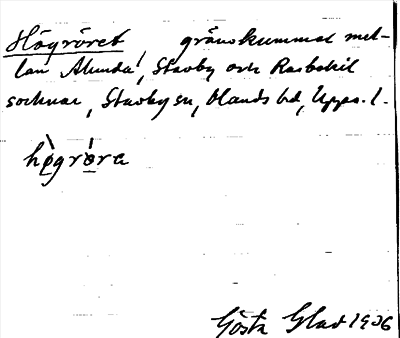 Högröret, gränskummel mel-
lan Alunda, Stavby och Rasbokil
socknar, Stavby sn, Olands hd, Upps. l.
hògrö́re
Gösta Glad 1936